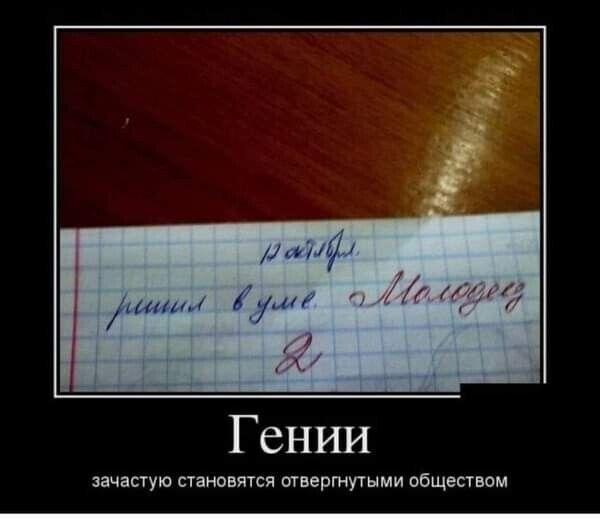 12 октября.
ришил в уме. Молодец
2
Гении
зачастую становятся отвергнутыми обществом